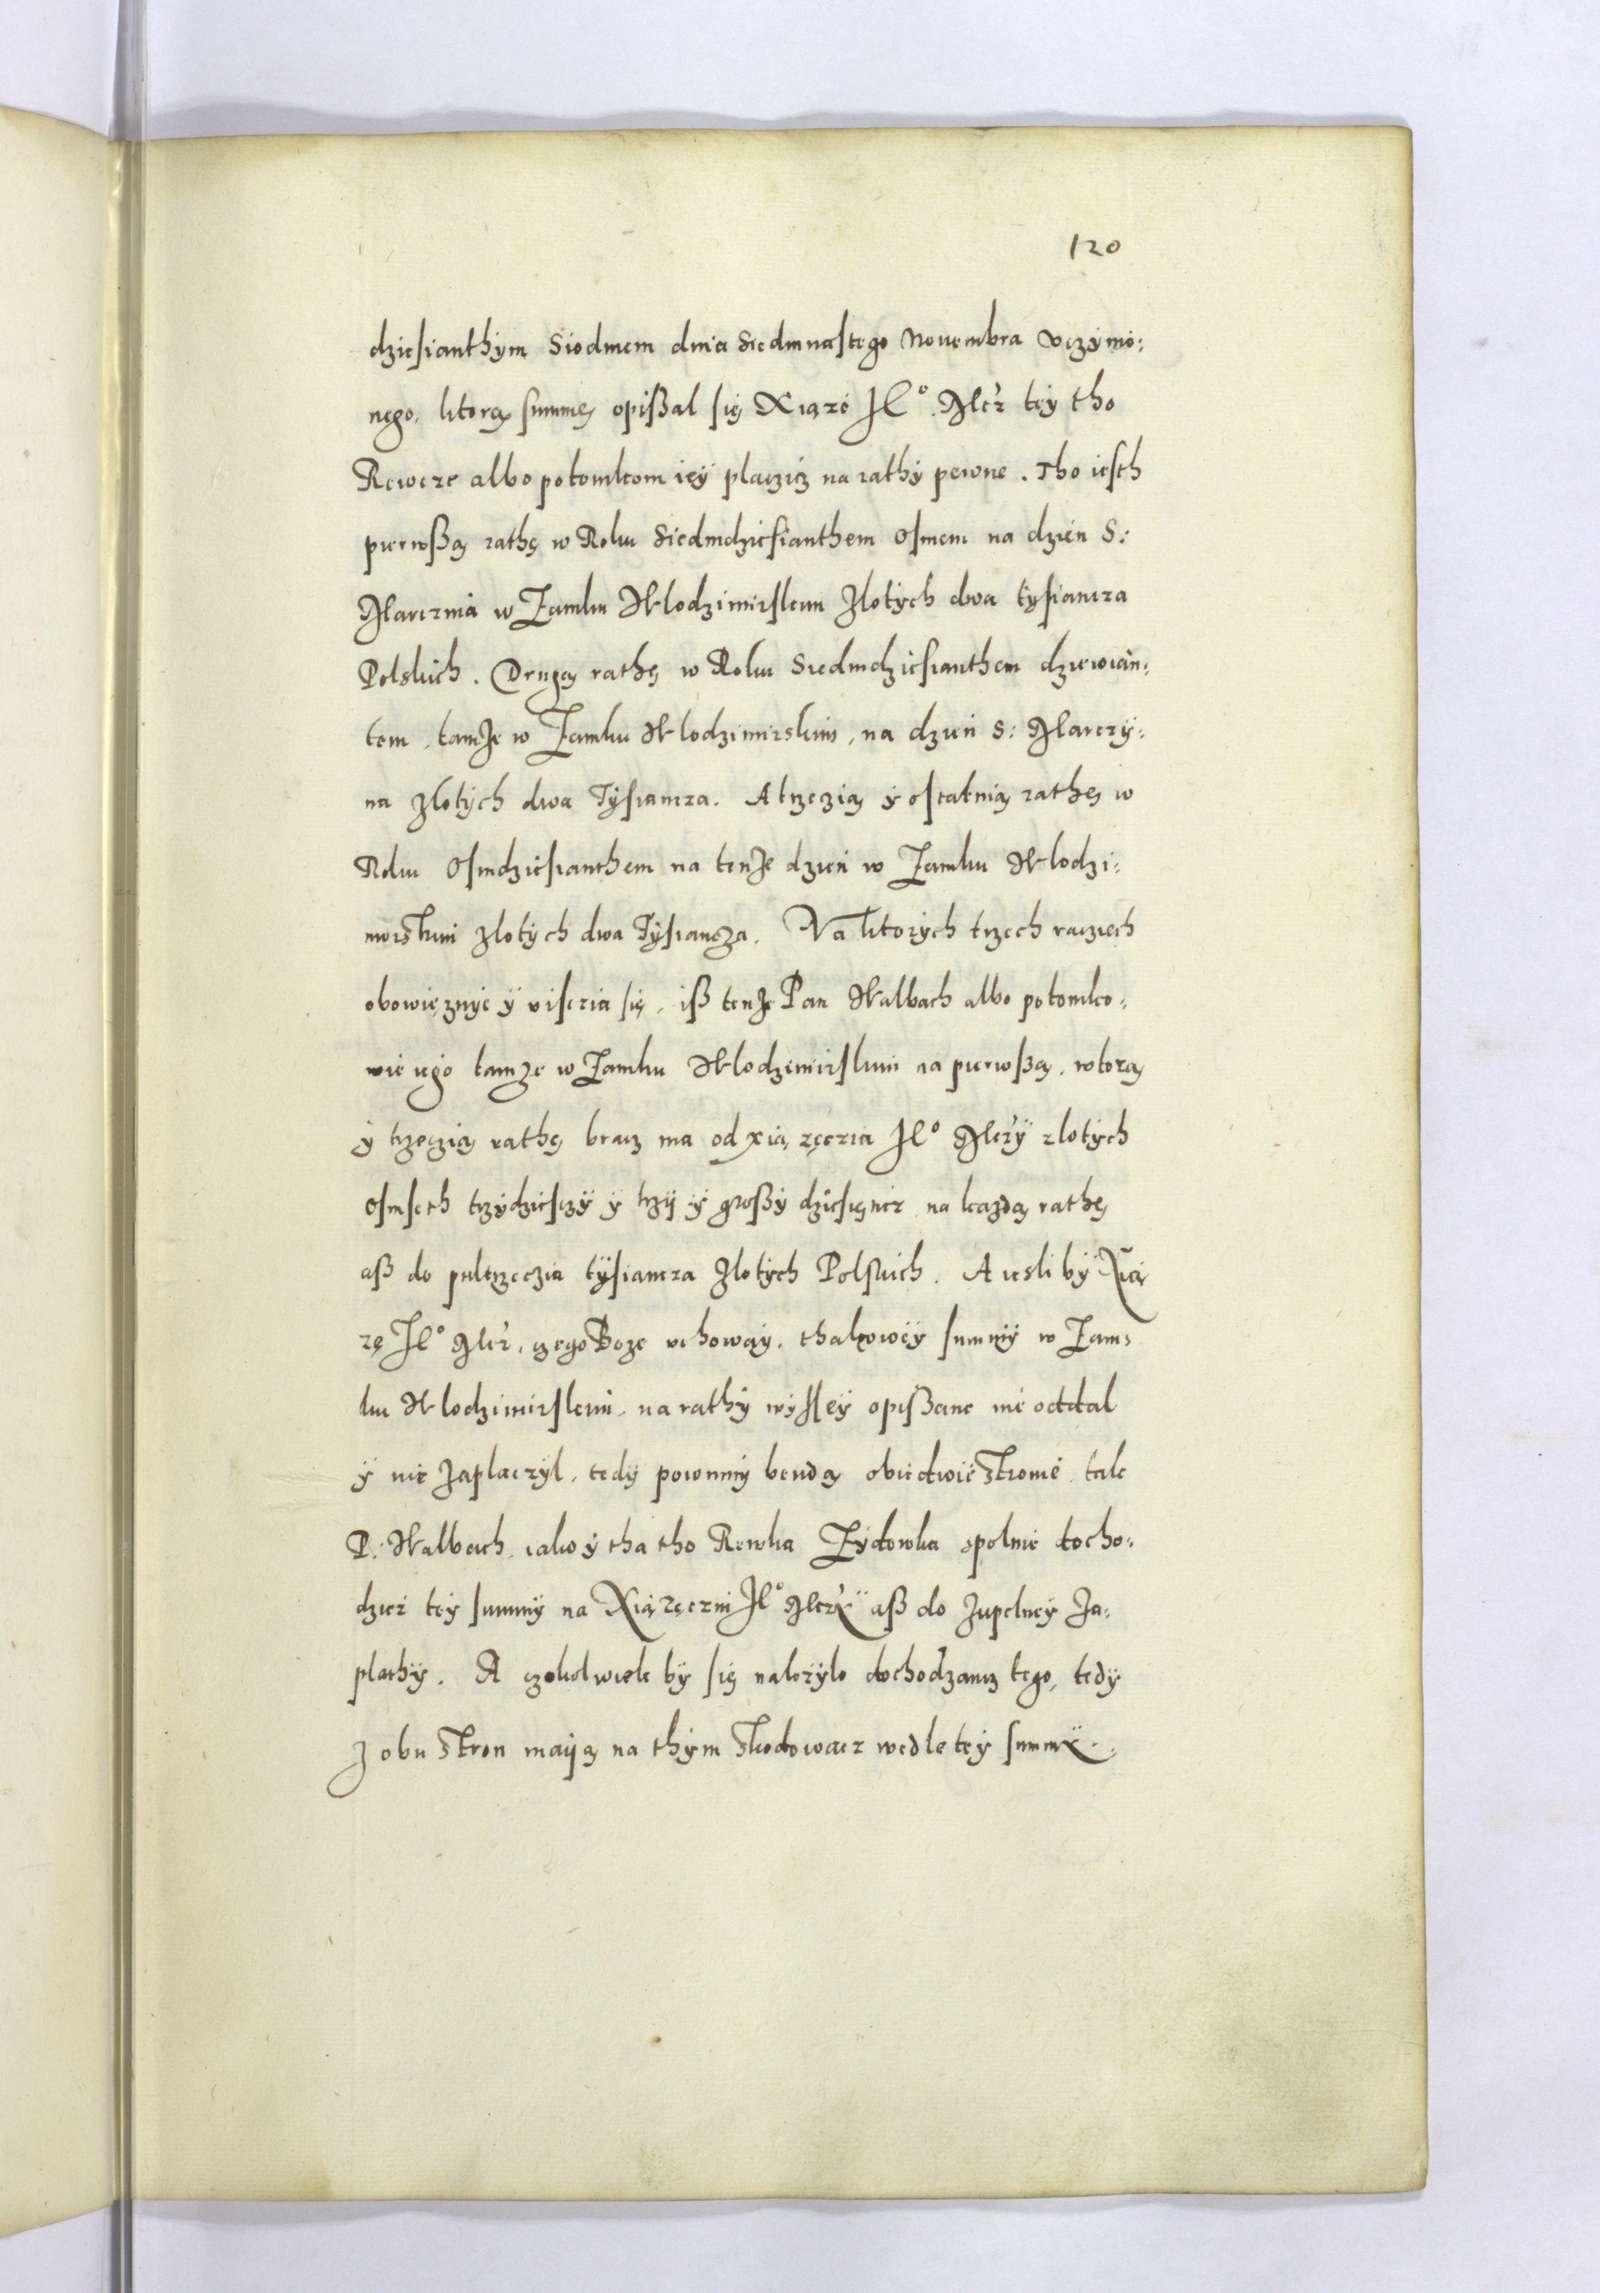 120
dziesianthym Siodmem dnia Siedmnastego Nouembra vczynio:
nego, ktorą summę opißal się Xiąże Jeº Mcz tey tho
Rewcze albo potomkom iey placzicz na rathy pewne. Tho iesth
pierwßą rathę w Roku Siedmdziesianthem Osmem na dzien S:
Marczina w Zamku Wlodzimirskim Zlotych dwa tysiancza
Polskich. Drugą rathę w Roku Siedmdziesianthem dziewian:
tem, tamże w Zamku Wlodzimirskim, na dzien S: Marczy:
na Zlotych dwa Tysiancza. A trzeczią y ostatnią rathę w
Roku Osmdziesianthem na tenże dzien w Zamku Wlodzi:
mirskim zlotych dwa Tysiancza. Na ktorych trzech racziech
obowięznye y iscia się, iß tenże Pan Walbach albo potomko:
wie iego tamze w Zamku Wlodzimirskim na pierwßą, wtorą
y trzeczią rathę bracz ma od xiązęczia Jeº Mczy zlotych
Osmseth trzydziesczy y trzy y großy dziesięncz na każdą rathę
aß do pultrzeczia tysiancza Zlotych Polskich. A iesli by Xią
zę Jeº Mcz, czego Boze vchoway, thakowey summy w Zam:
ku Wlodzimirskim, na rathy wyssey opißane nie oddal
y nie zaplaczyl, tedy powinny bendą obiedwie stronie, tak
P: Walbach, iako y tha tho Rewka Zydowka spolnie docho:
dzicz tey summy na Xiązęczin Jeº Mczy aß do zupelney za:
plathy. A czokolwiek by się nalozylo dochodzancz tego, tedy
z obu stron maiją na thym skodowacz wedle tey summy.